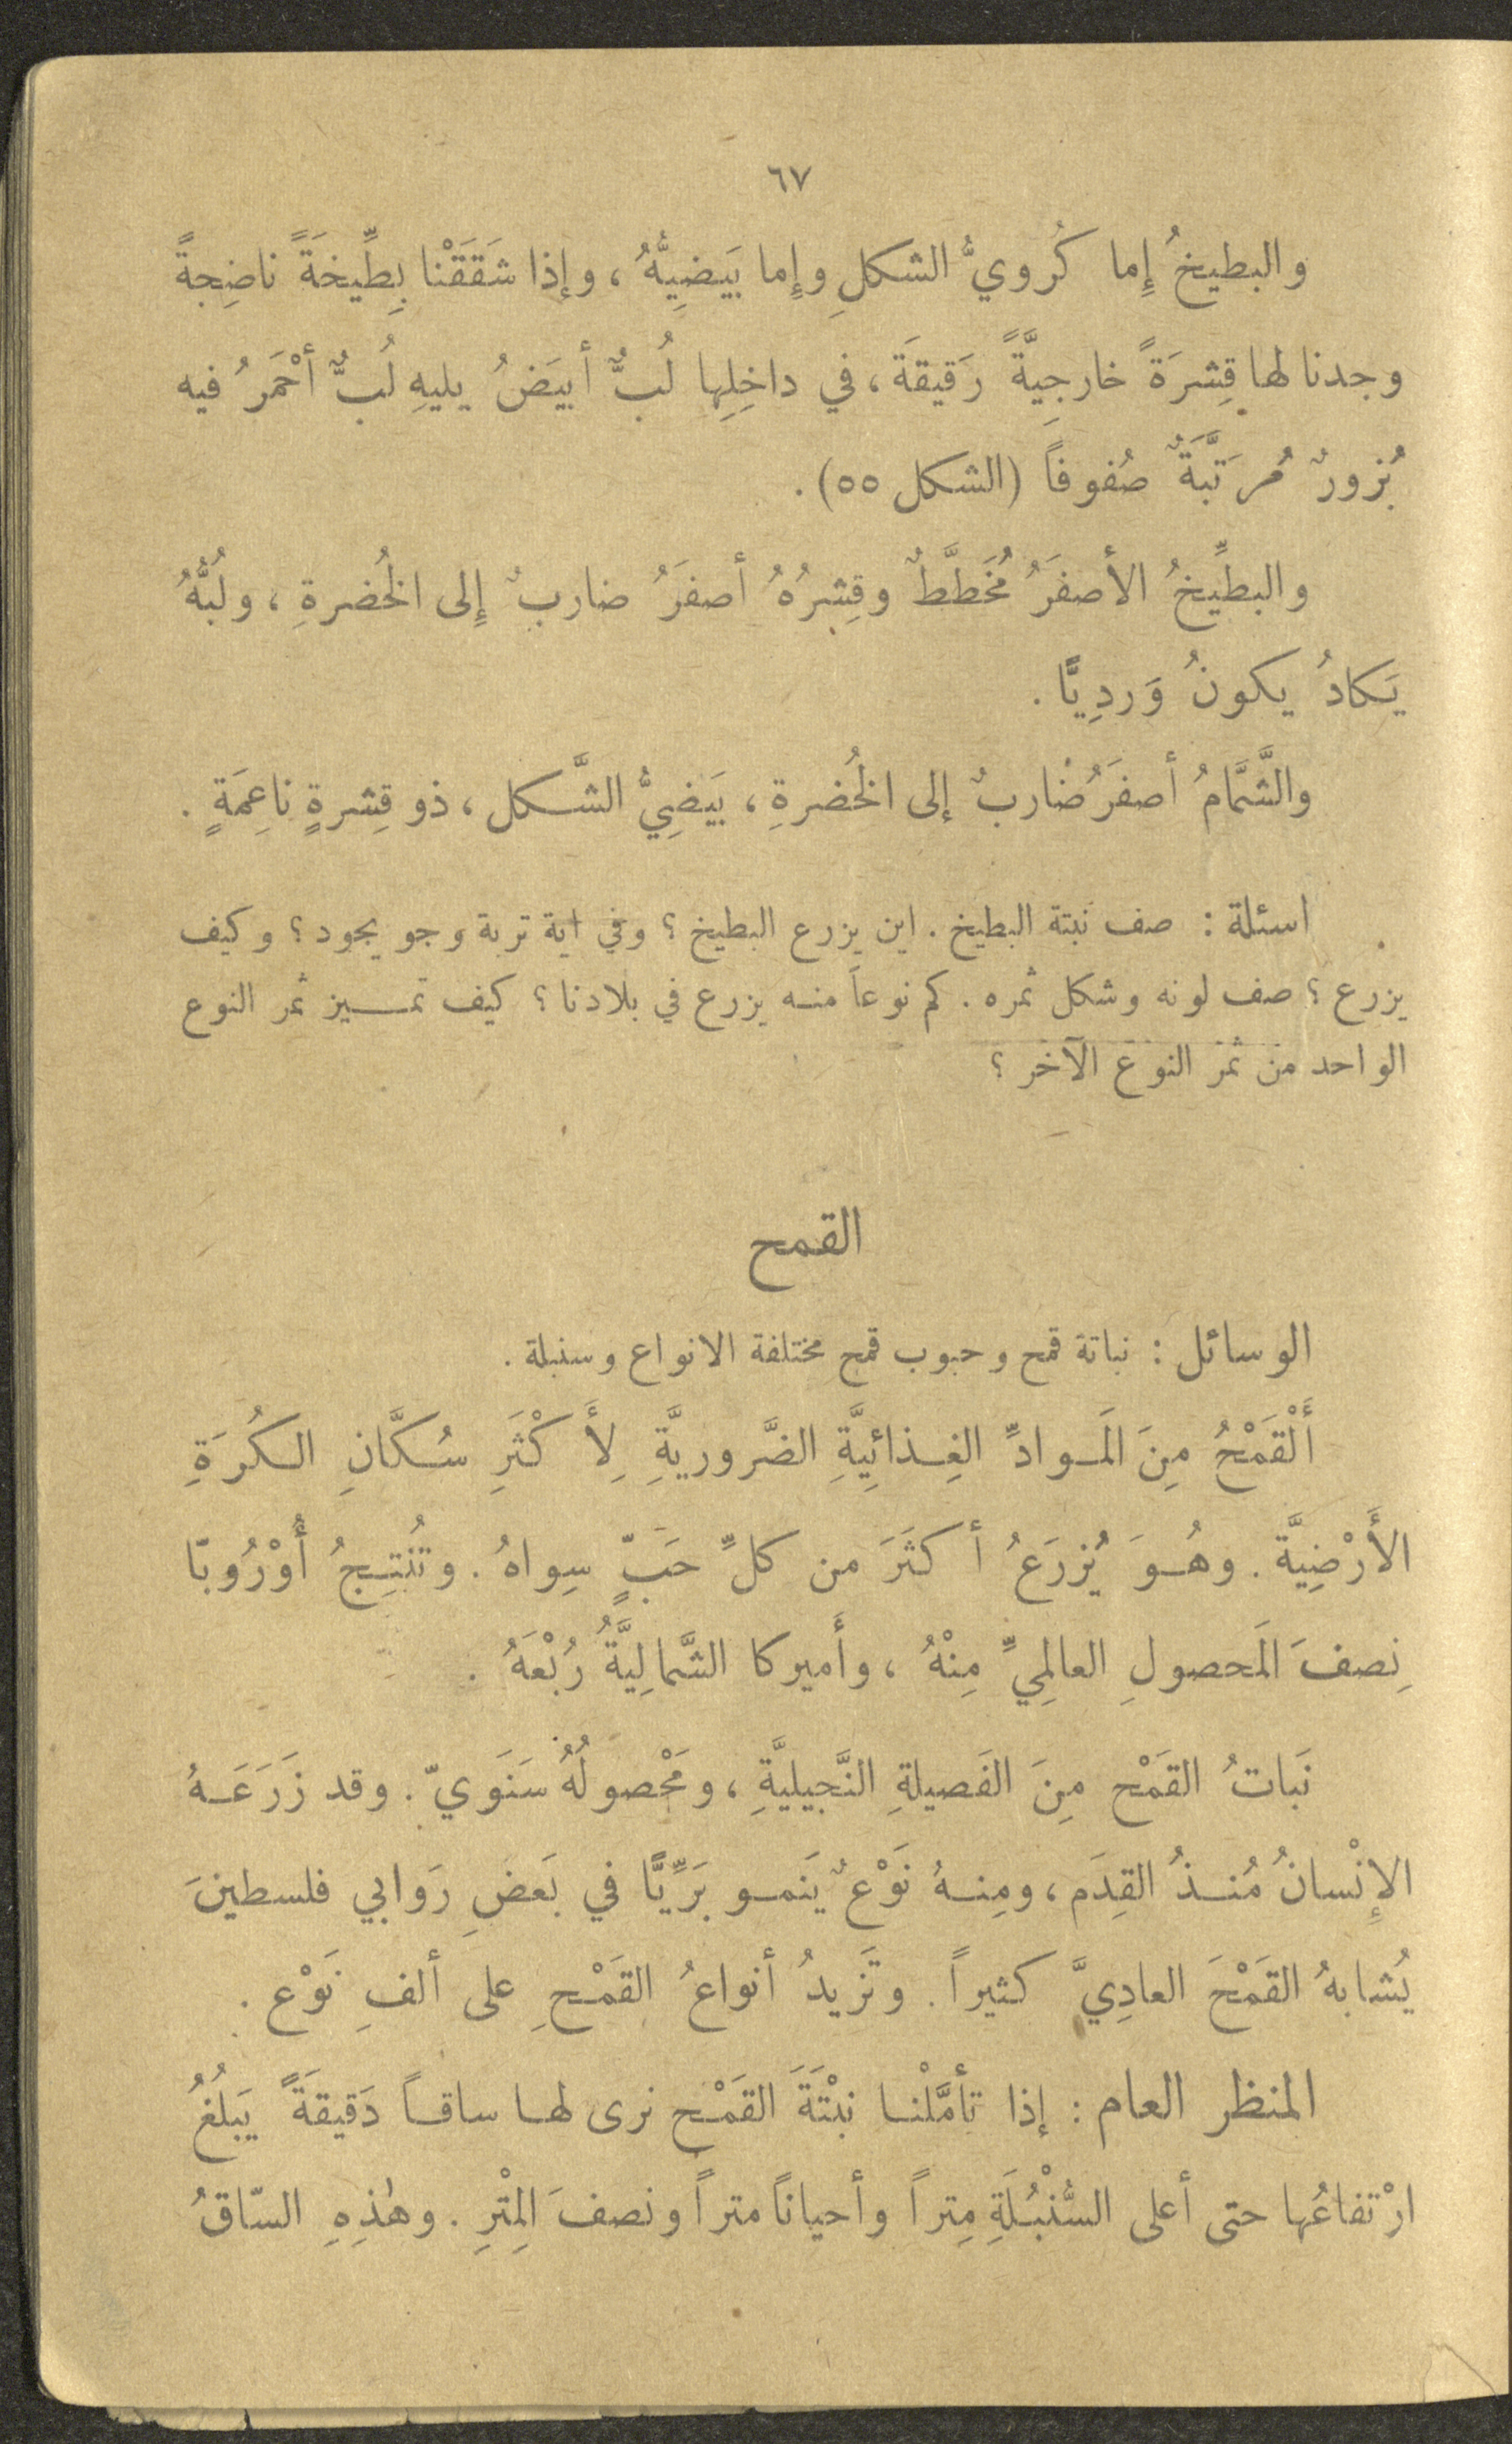 ٦٧
والبطيخُ إِما كُرويُّ الشكلِ وإِما بَيَضِيُّهُ ، وإذا شَقَقْنا بِطِّيخَةً ناضِجةً
وجدنا لها قِشرَةً خارجِيَّةً رَقيقةَ ، في داخِلِها لُبٌّ أبيَضُ يليهِ لُبٌّ أحْمَرُ فيه
بُزورٌ مُرَتَّبَةٌ صُفوفاً (الشكل ٥٥) .
والبطِّيخُ الأصفَرُ مُخَطَّطٌ وقِشرُهُ أصفَرُ ضاربٌ إِلى الخُضرةِ ، ولُبُّهُ
يَكادُ يكونُ وَردِيًّا .
والشَّمَّامُ أصفَرُ ضاربٌ إلى الخُضرةِ ، بَيَضِيُّ الشَّكل ، ذو قِشرةٍ ناعِمَةٍ .
اسئلة : صف نبتة البطيخ . اين يزرع البطيخ ؟ وفي اية تربة وجو يجود ؟ وكيف
يزرع ؟ صف لونه وشكل ثمره . كم نوعاً منه يزرع في بلادنا ؟ كيف تميز ثمر النوع
الواحد من ثمر النوع الآخر ؟
القمح
الوسائل : نباتة قمح وحبوب قمح مختلفة الانواع وسنبلة .
أَلْقَمْحُ مِنَ المَوادِّ الغِذائِيَّةِ الضَّروريَّةِ لِأَكْثَرِ سُكَّانِ الكُرَةِ
الأَرْضِيَّة . وهُوَ يُزرَعُ أكثَرَ من كلِّ حَبٍّ سِواهُ . وتُنتِجُ أُوْرُوبّا
نِصفَ المَحصولِ العالمِيِّ مِنْهُ ، وأَميركا الشَّمالِيَّةُ رُبْعَهُ .
نَباتُ القَمْح مِنَ الفَصيلةِ النَّجيليَّةِ ، ومَحْصولُهُ سَنَويّ . وقد زَرَعَهُ
الإِنْسانُ مُنذُ القِدَم ، ومِنهُ نَوْعٌ يَنمو بَرِّيًّا في بَعَضِ رَوابي فلسطينَ
يُشابهُ القَمْحَ العادِيَّ كثيراً . وتَزيدُ أنواعُ القَمْحِ على ألفِ نَوْع .
المنظر العام : إذا تأمَّلْنا نبْتَةَ القَمْح نرى لها ساقاً دَقيقةً يَبلُغُ
ارْتفاعُها حتى أعلى السُّنْبُلَةِ مِتراً وأحياناً متراً ونصفَ المِتْرِ . وهٰذِهِ السّاقُ